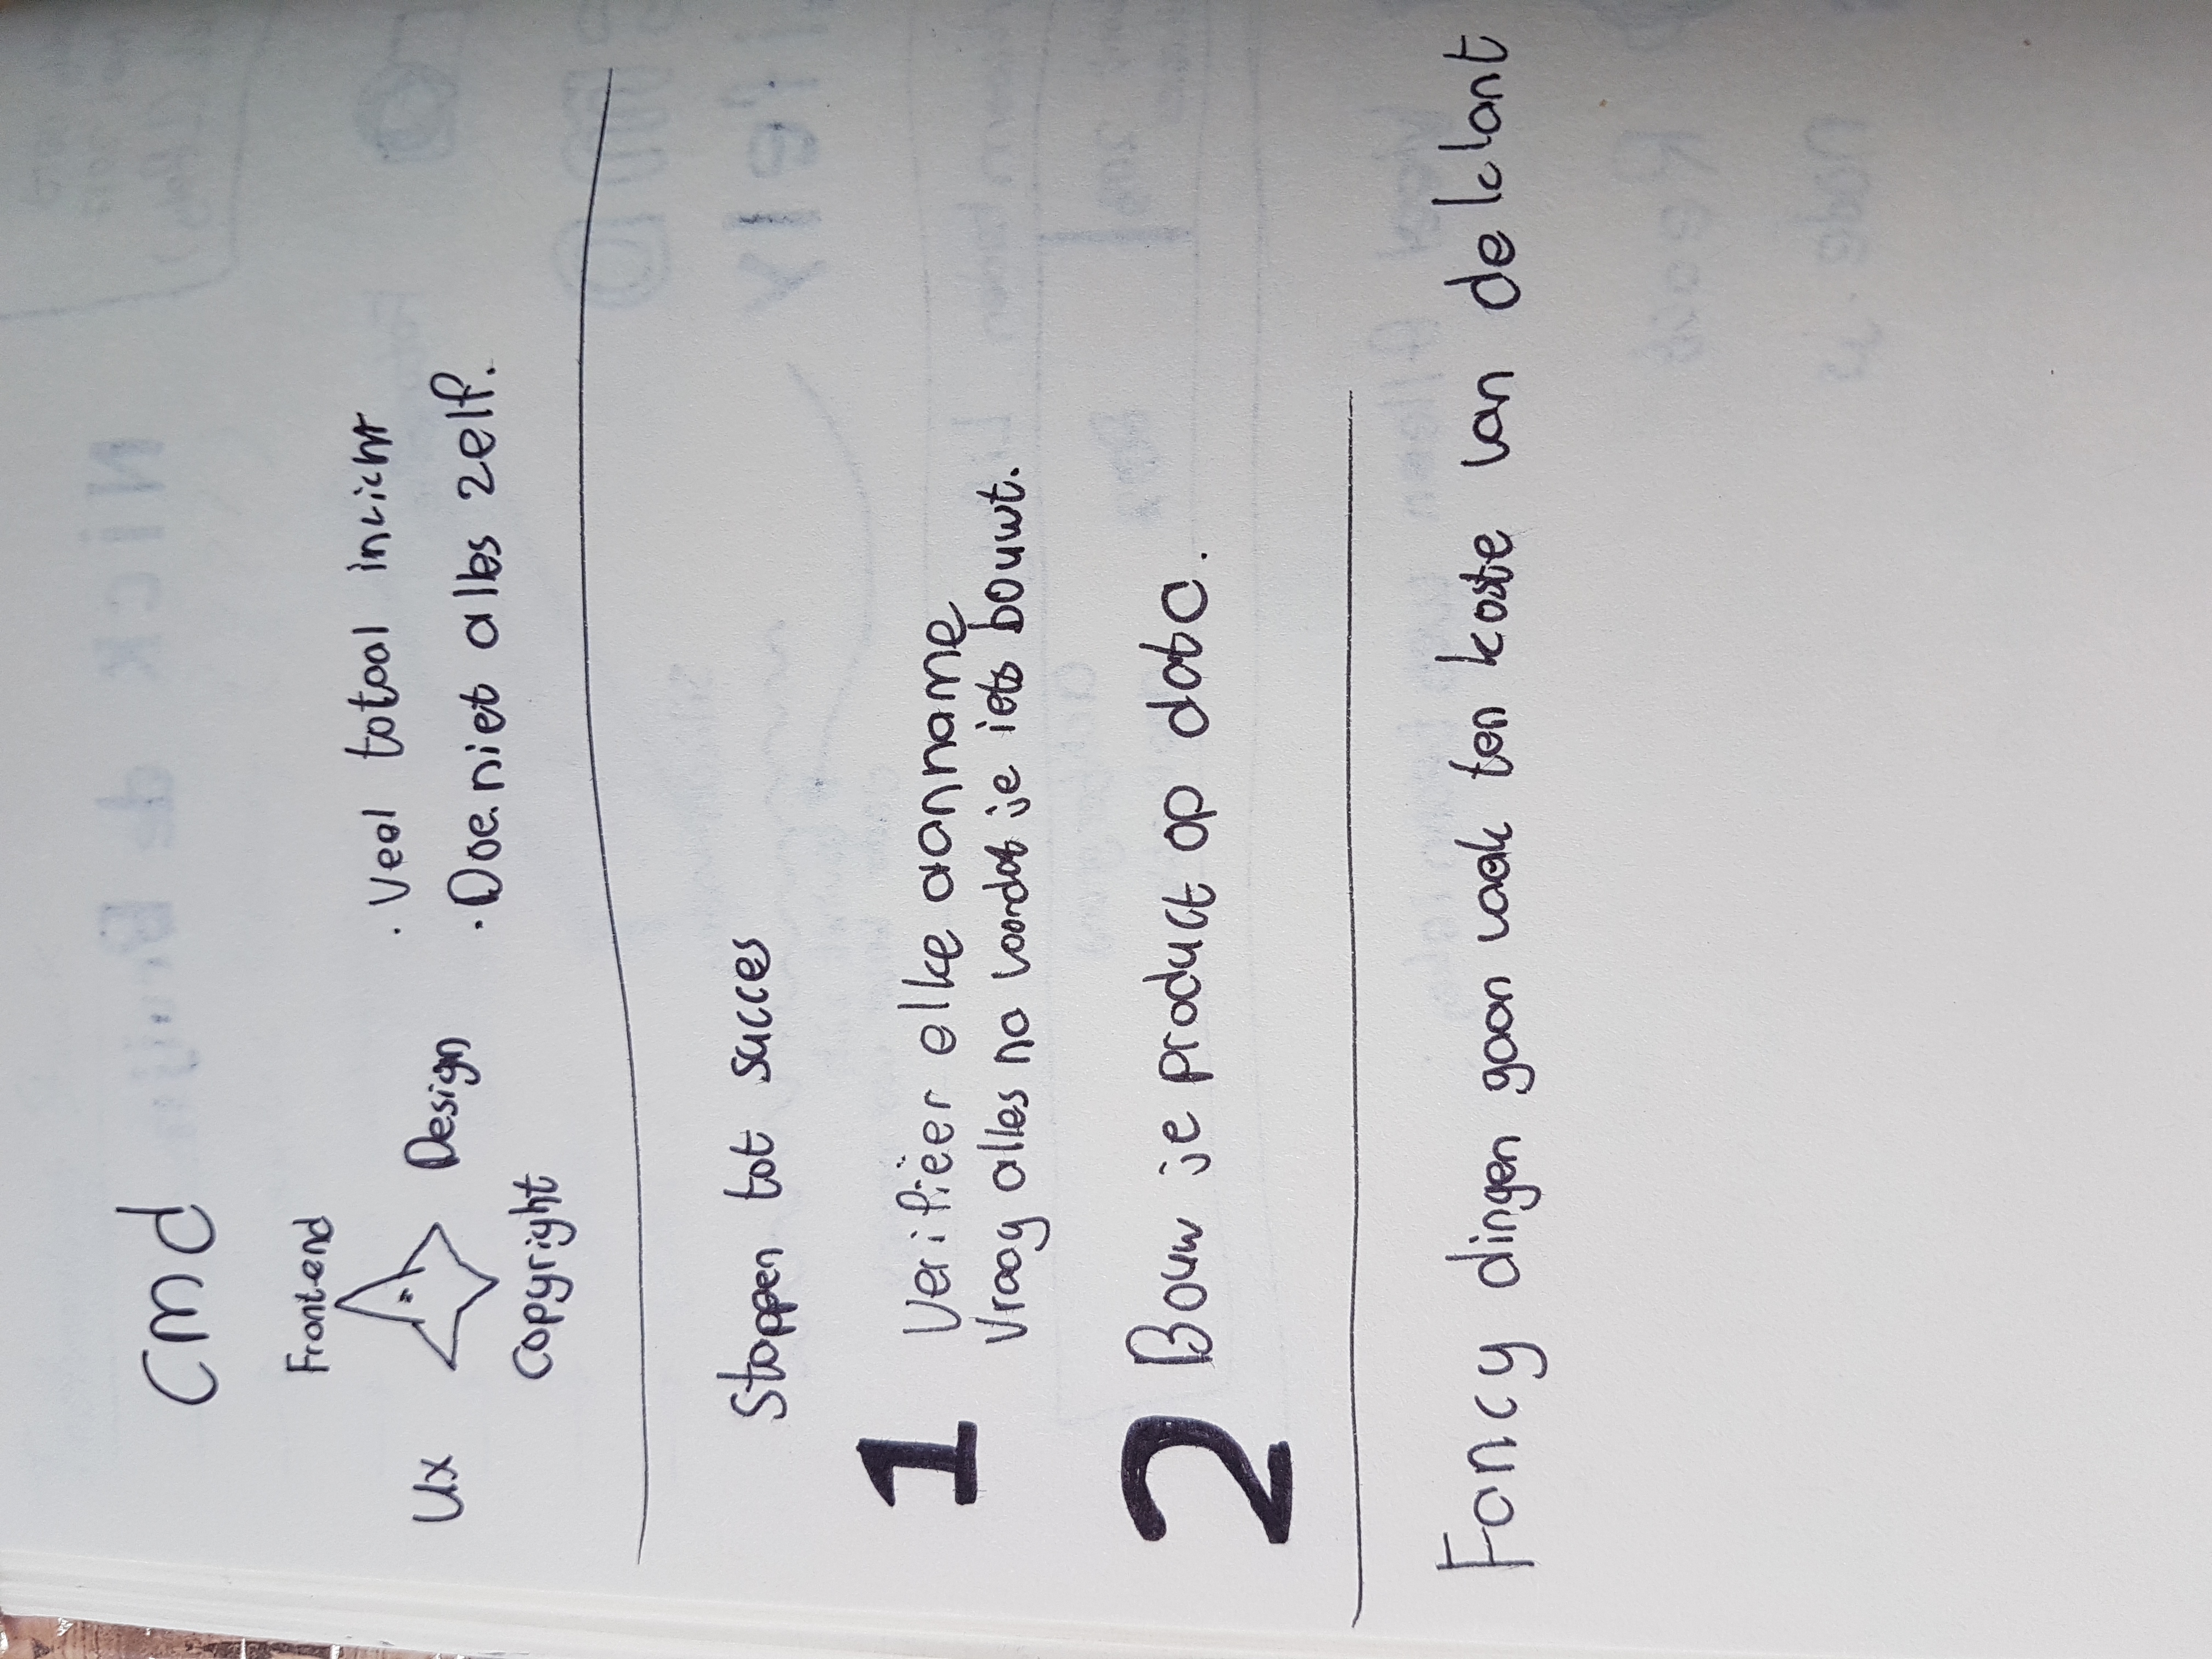 cmd
Frontend
Ux
Design
Copyright
• Veel totaal inzicht
• Doe niet alles zelf.
Stappen tot succes
1
Verifiëer elke aanname
Vraag alles na voordat je iets bouwt.
2
Bouw je product op data.
Fancy dingen gaan vaak ten koste van de klant